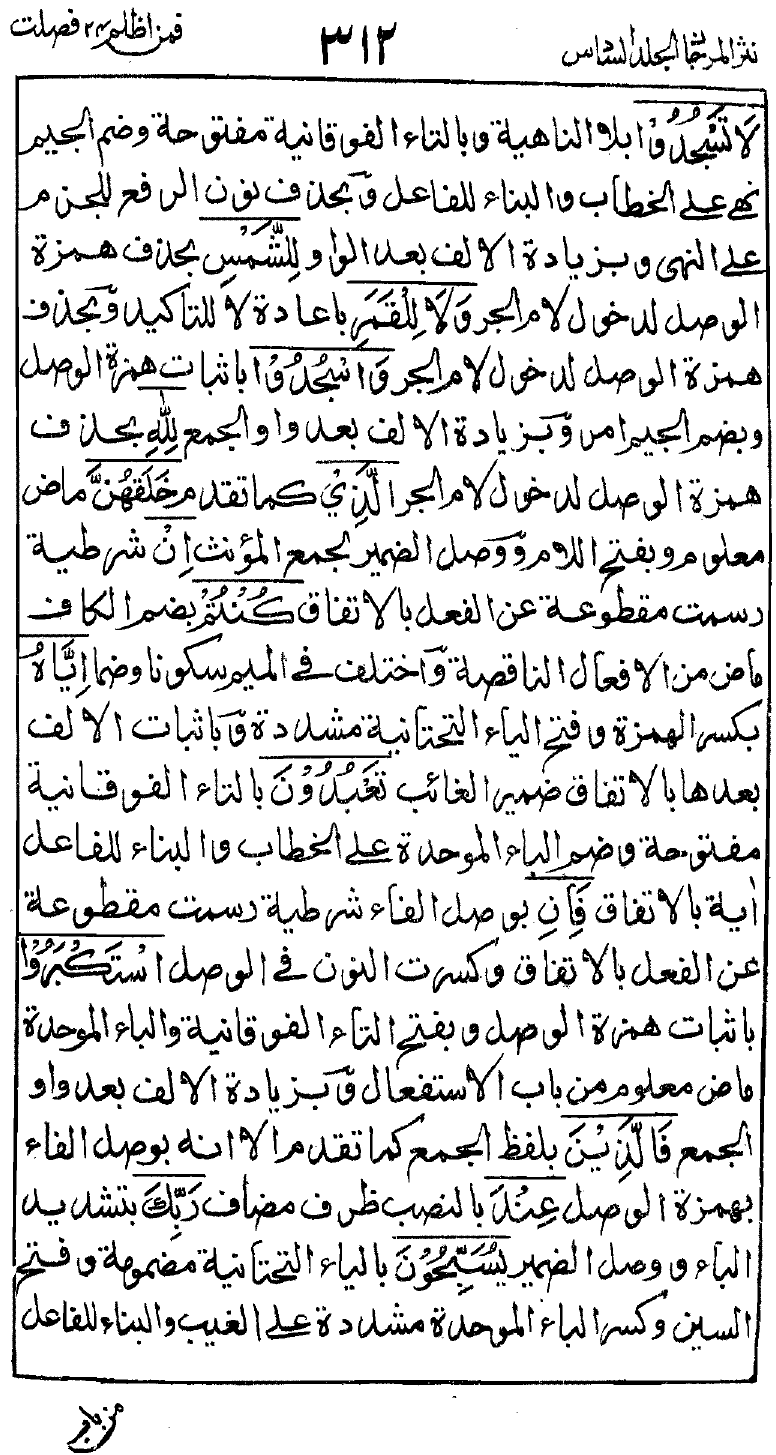 نثر المرجان المجلد السادس ٣١٢ فمن اظلم ٢٤ فصلت
لَا تَسْجُدُوْا بلا الناهية وبالتاء الفوقانية مفتوحة وضم الجيم
نهى على الخطاب والبناء للفاعل وبحذف نون الرفع للجزم
على النهى وبزيادة الالف بعد الواو لِلشَّمْسِ بحذف همزة
الوصل لدخول لام الجر وَلَا لِلْقَمَرِ باعادة لا للتاكيد وبحذف
همزة الوصل لدخول لام الجر وَاسْجُدُوْا باثبات همزة الوصل
وبضم الجيم امر وبزيادة الالف بعد واو الجمع لِلّٰهِ بحذف
همزة الوصل لدخول لام الجر الَّذِيْ كما تقدم خَلَقَهُنَّ ماض
معلوم وبفتح اللام ووصل الضمير لجمع المؤنث اِنْ شرطية
رسمت مقطوعة عن الفعل بالاتفاق كُنْتُمْ بضم الكاف
ماض من الافعال الناقصة واختلف في الميم سكونا وضما اِيَّاهُ
بكسر الهمزة وفتح الياء التحتانية مشددة وباثبات الالف
بعدها بالاتفاق ضمير الغائب تَعْبُدُوْنَ بالتاء الفوقانية
مفتوحة وضم الباء الموحدة على الخطاب والبناء للفاعل
اٰية بالاتفاق فَاِنِ بوصل الفاء شرطية رسمت مقطوعة
عن الفعل بالاتفاق وكسرت النون في الوصل اسْتَكْبَرُوْا
باثبات همزة الوصل وبفتح التاء الفوقانية والباء الموحدة
ماض معلوم من باب الاستفعال وبزيادة الالف بعد واو
الجمع فَالَّذِيْنَ بلفظ الجمع كما تقدم الا انه بوصل الفاء
بهمزة الوصل عِنْدَ بالنصب ظرف مضاف رَبِّكَ بتشديد
الباء ووصل الضمير يُسَبِّحُوْنَ بالياء التحتانية مضمومة وفتح
السين وكسر الباء الموحدة مشددة على الغيب والبناء للفاعل